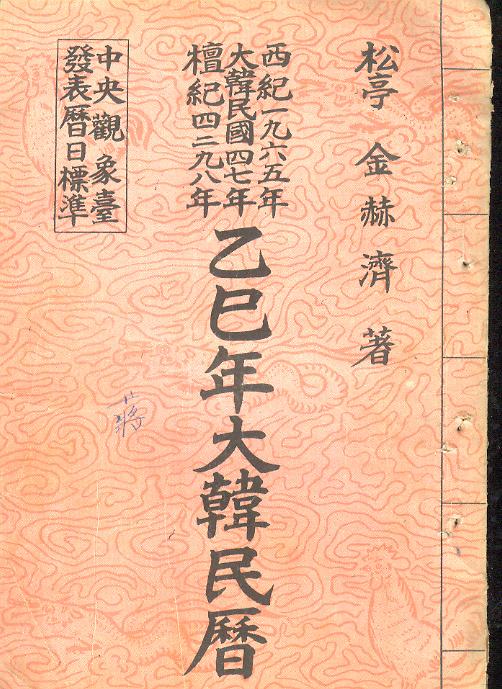 松亭 金赫濟 著
西紀一九六五年
大韓民國四七年
檀紀四二九八年
乙巳年大韓民曆
中央觀象臺
發表曆日標準
蔣